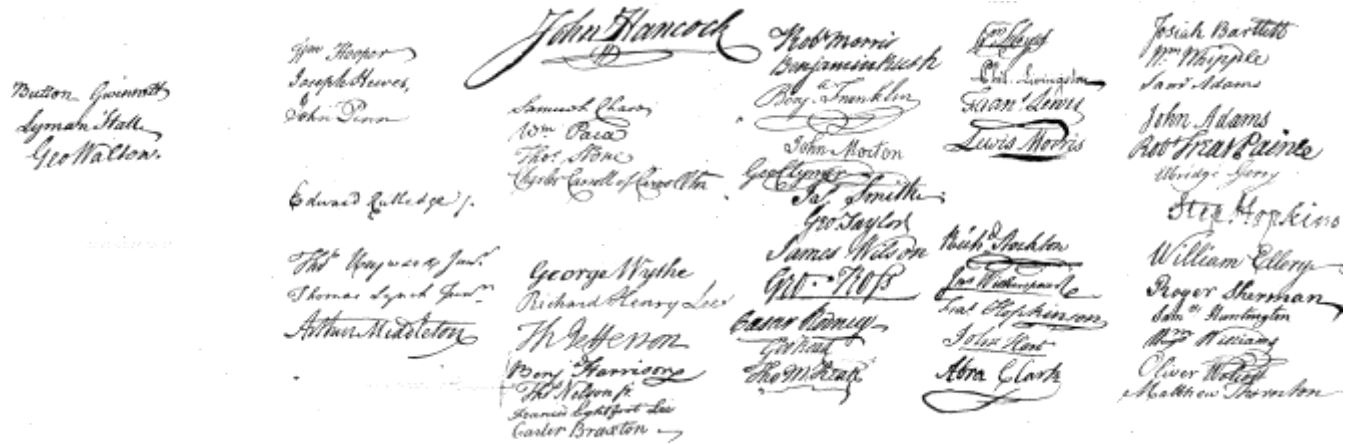 Button Gwinnett
Lyman Hall
Geo Walton.
Wm Hooper
Joseph Hewes,
John Penn
Edward Rutledge /.
Thos Heyward Junr.
Thomas Lynch Junr.
Arthur Middleton
John Hancock
Samuel Chase
Wm Paca
Thos Stone
Charles Carroll of Carrollton
George Wythe
Richard Henry Lee
Th Jefferson
Benj Harrison
Thos Nelson jr.
Francis Lightfoot Lee
Carter Braxton
Robt Morris
Benjamin Rush
Benj. Franklin
John Morton
Geo Clymer
Jas Smith
Geo Taylor
James Wilson
Geo. Ross
Caesar Rodney
Geo Read
Tho M:Kean
Wm Floyd
Phil. Livingston
Frans Lewis
Lewis Morris
Richd Stockton
Jno Witherspoon
Fras Hopkinson
John Hart
Abra Clark
Josiah Bartlett
Wm Whipple
Saml Adams
John Adams
Robt Treat Paine
Elbridge Gerry
Step Hopkins
William Ellery
Roger Sherman
Samel Huntington
Wm Williams
Oliver Wolcott
Matthew Thornton